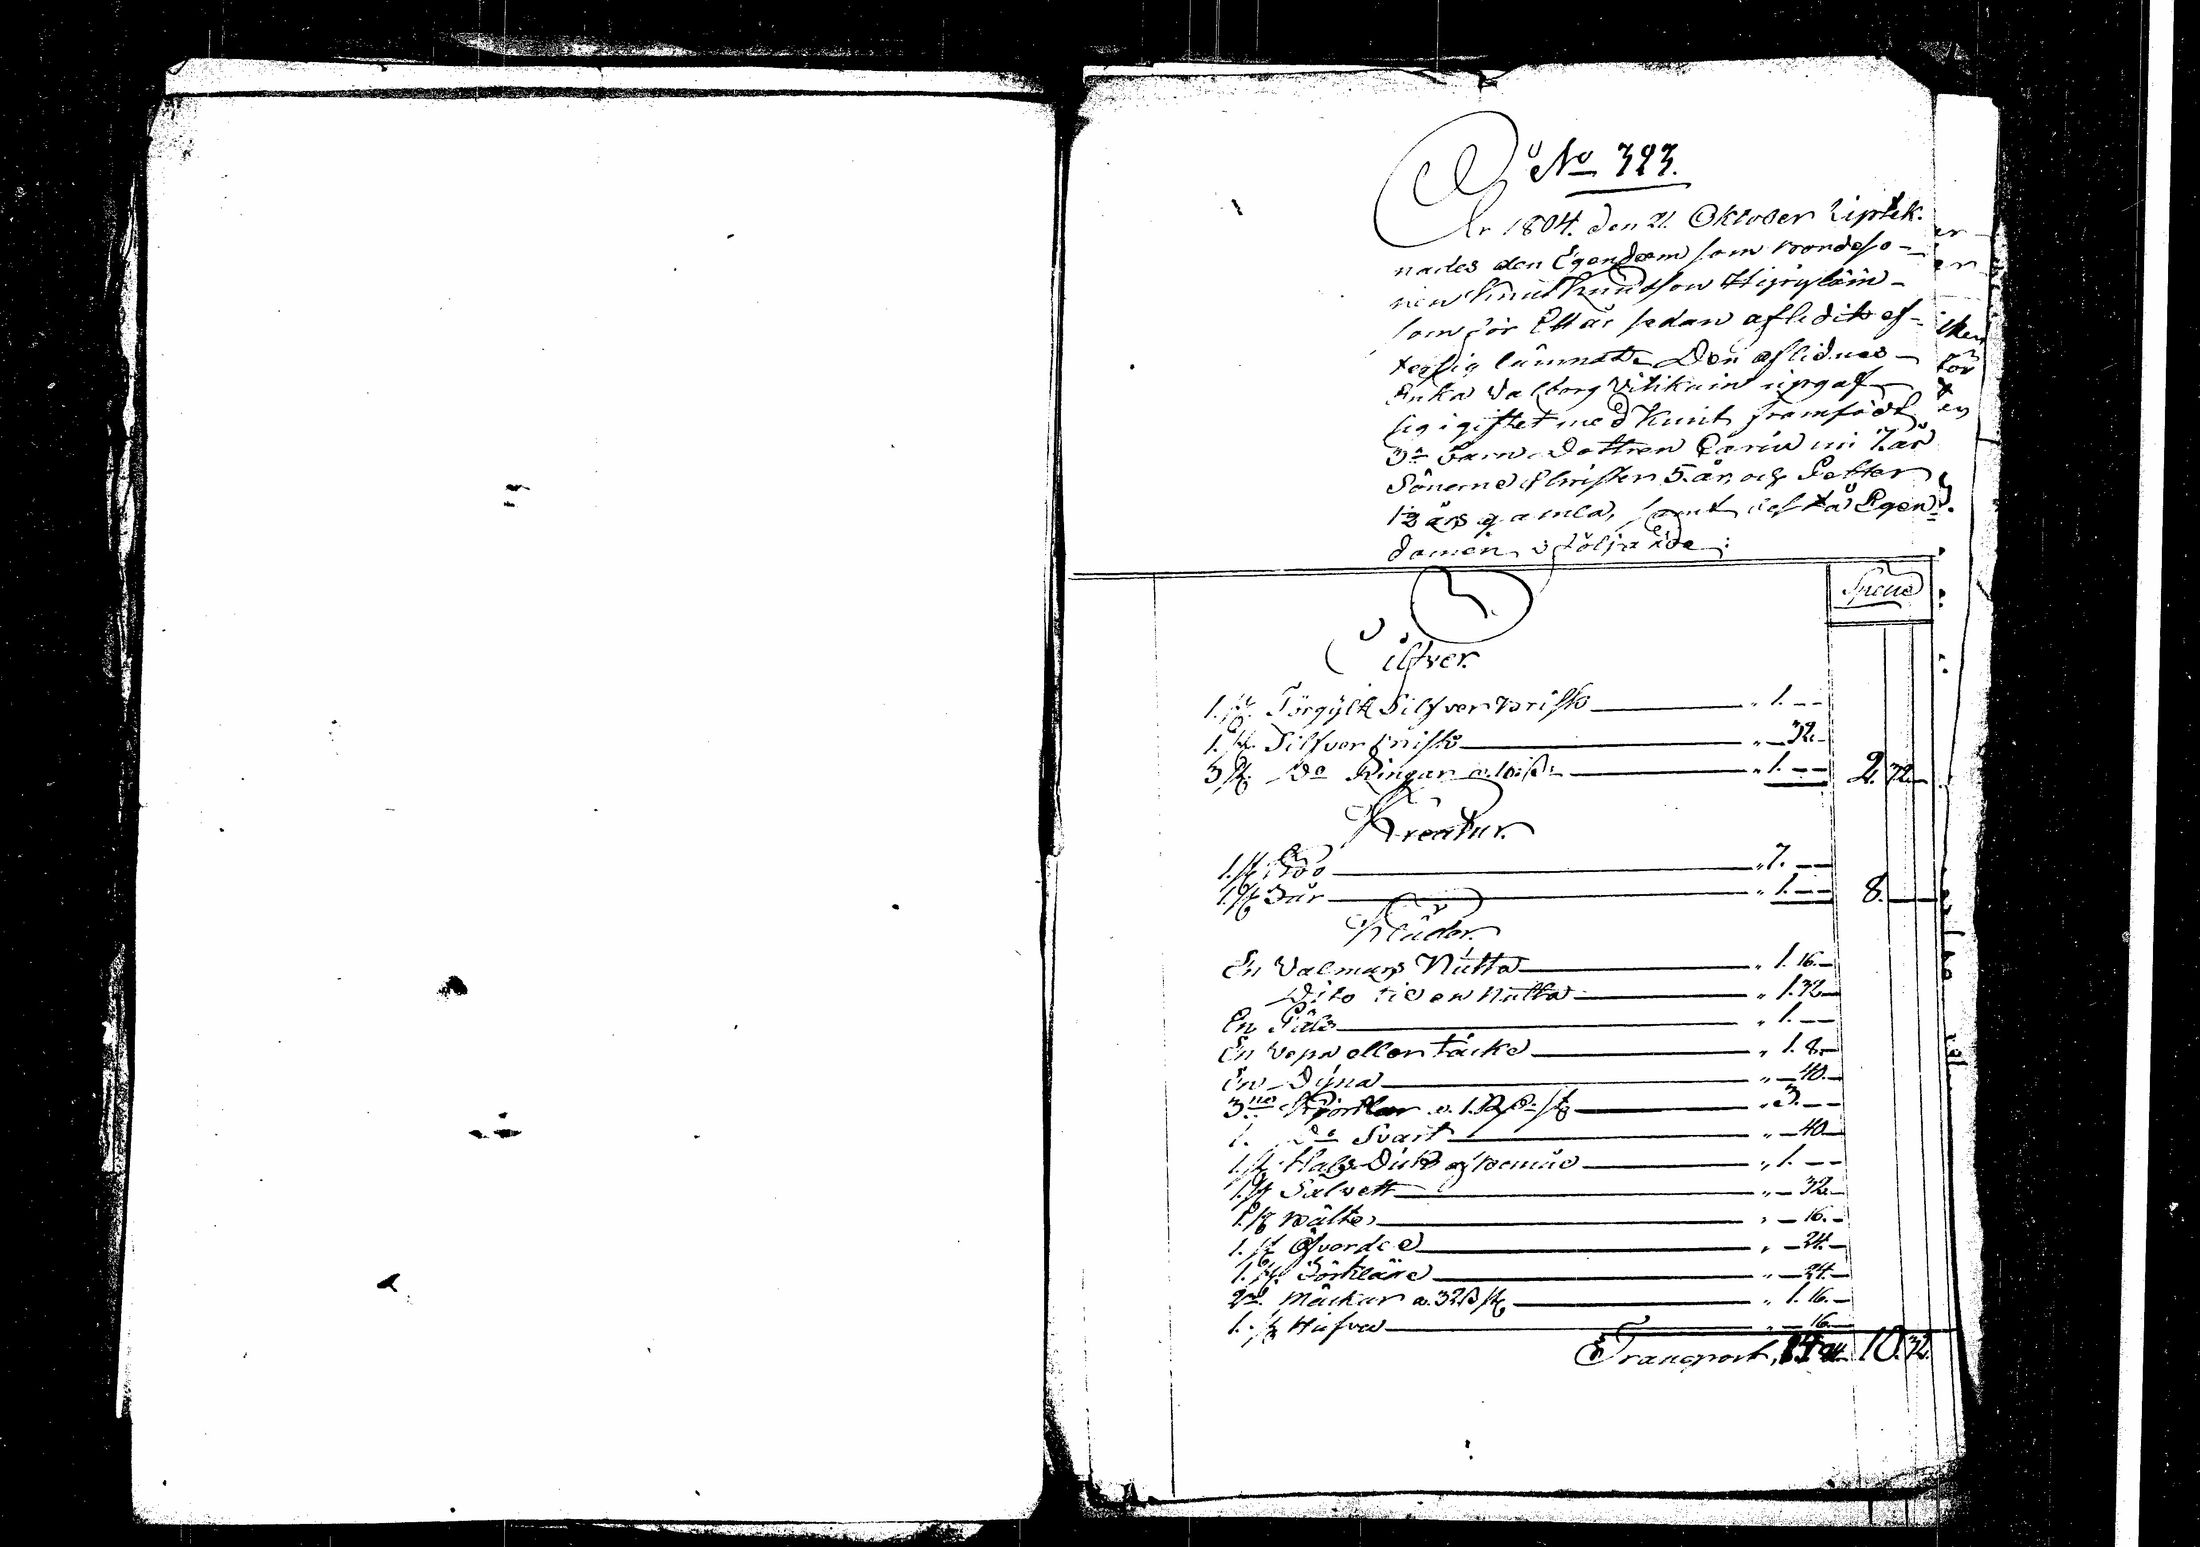 No 323.
År 1804. den 21 Oktober uptek-
nades den Egendom som bondeso-
nen Knut Knudson
som för Ett år sedan afledit ef-
ter sig lämnat Den aflidnes
Enka Valborg Vitikain upgaf
sig i giftet med Knut framfödt
3ne Barn Dottren Carin nu 7. år
Sönerne Christer 5. år och Petter
1½ års gamla, samt Egen-
domen i följande:
Specie
Silfver.
1. st. Förgylt Silfver Brisko „ 1. — —
1. st. Silfver Brisko „ — 32. —
3 st. Do Ringar „ 1. — — 2. 32. —
Kreatur.
1. st. Koo „ 7. — —
1. st. Får „ 1. — — 8. — —
Kläder.
En Valmars Kutta „ 1. 16. —
Dito til en Kutta „ 1. 32 —
En Päls „ 1. — —
En Vepa eller täcke „ 1. 8. —
En Dyna „ — 40. —
3ne Kjortlar a. 1. R st „ 3. — —
1. Do Svart „ — 40 —
1. st. Hals Duk af „ 1. — —
1. st Salvett „ — 32. —
1. st Bälte „ — 16. —
1. st Öfverdel „ — 24. —
1. st. Förkläde „ — 24. —
2ne Mössor a. 32 ß st „ 1. 16. —
1. st Hufva „ — 16. —
Transport, 10. 32.